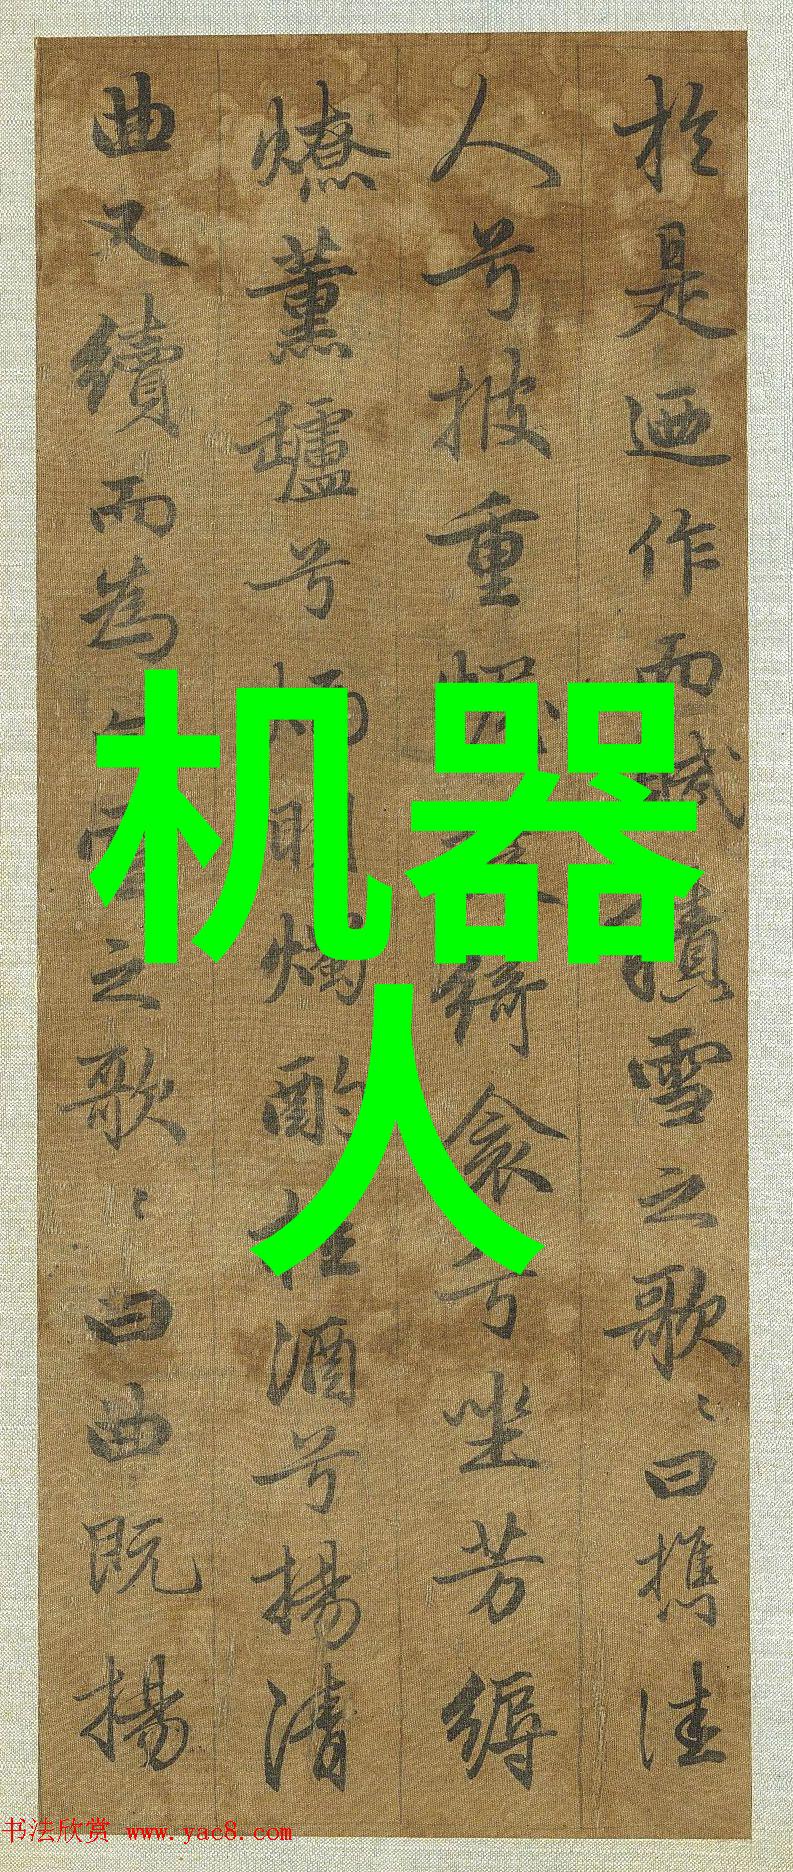 於是迺作而賦積雪之歌〻曰携佳
人兮披重幄綺衾兮坐芳縟
燎薰罏兮炳明燭酌桂酒兮揚清
曲又續而為雪之歌〻曰曲既揚
机器
人
书法欣赏 www.yac8.com